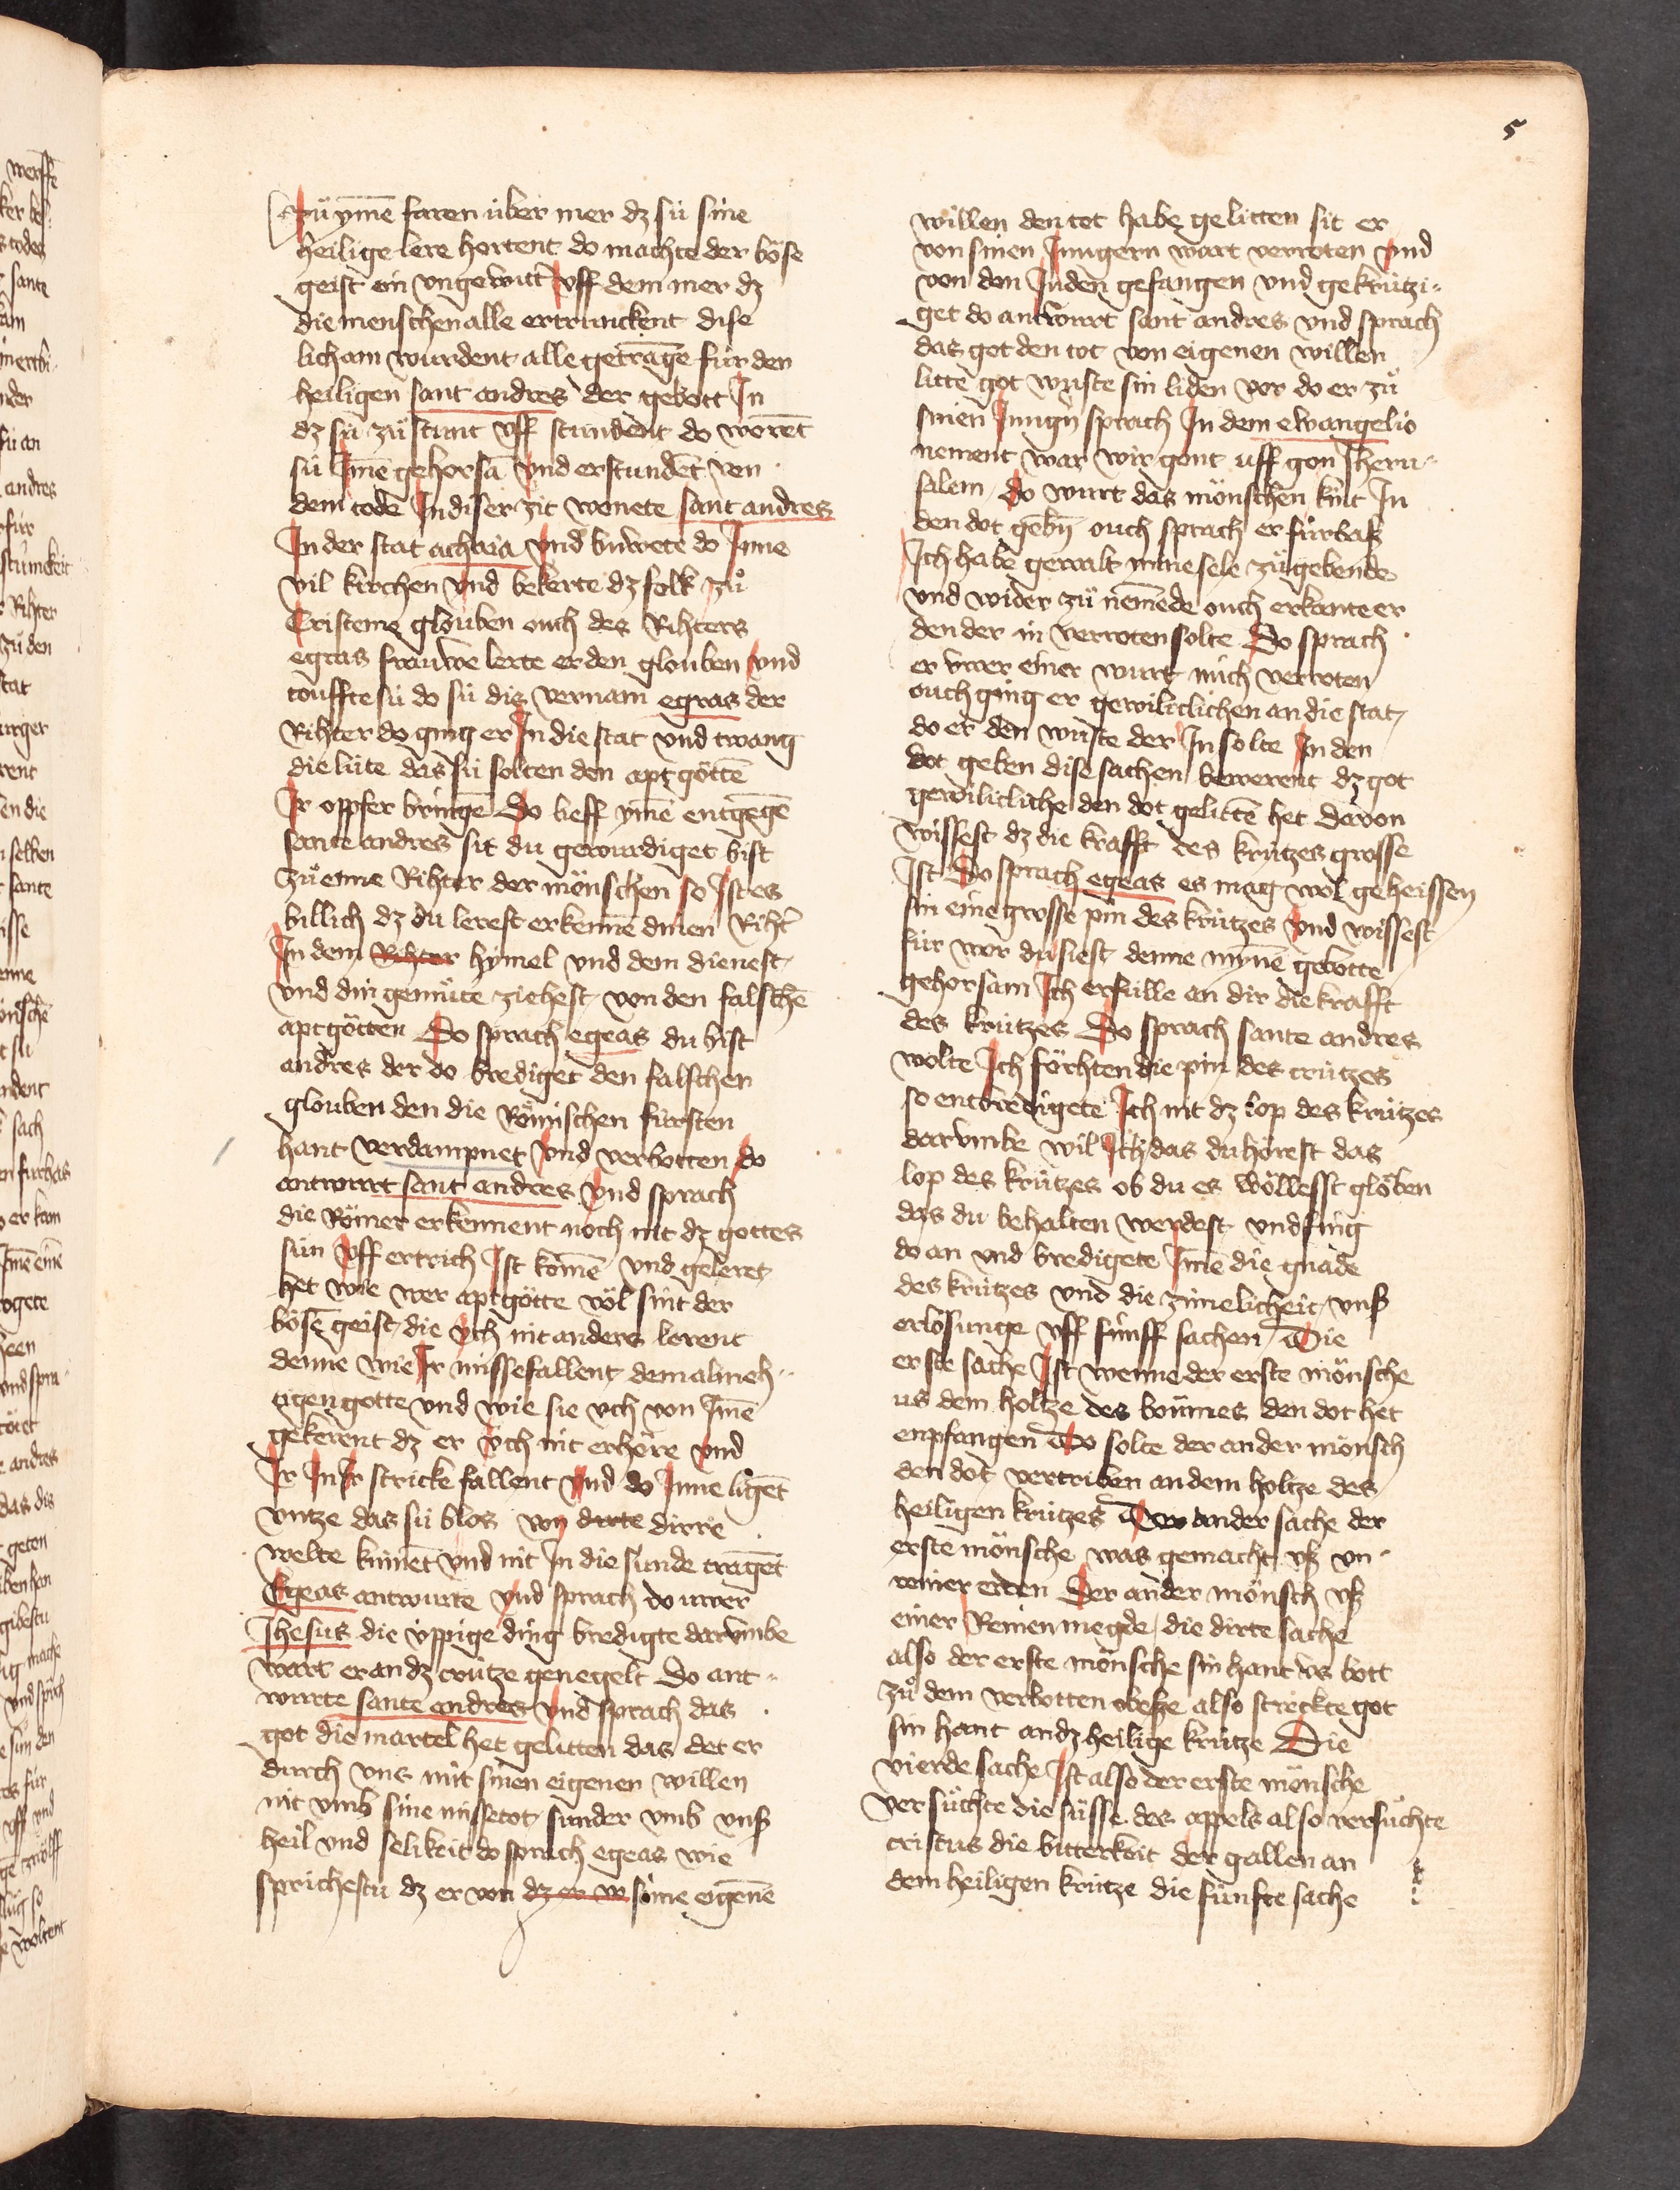 5
zuͦ ymē faren über mer dz sü sine
heilige lere hortent do machte der böse
geist ein vngewitt' vff dem mer dz
die menschen alle ertrunckent dise
licham wurdent alle getragē für den
heiligen sant andres der gebott In
dz sü zuͦ stunt vff stundent do worēt
sü Imē gehorsā vnd erstundēt von
dem tode In diser zit wonete sant andres
In der stat achaia vnd buwete do Inne
vil kirchen vnd bekerte dz folk zuͦ
Cristeme glouben ouch des Rihters
egeas frauwe lerte er den glouben vnd
touffte sü do sü dis vernam egeas der
Rihter do ging er In die stat vnd twang
die lüte das sü solten den aptgöttē
Ir oppfer bringē Do lieff ymē entgegē
sante andres sit du gewurdiget bist
zuͦ eime Rihter der mönschen so Ist es
billich dz du lerest erkennē dinen Riht'
In dem Rihter hymel vnd dem dienest
vnd din gemüte ziehest von den falschē
aptgötten Do sprach egeas du bist
andres der do brediget den falschen
glouben den die Römischen fürsten
hant verdampnet vnd verbotten do
antwurt sant andres vnd sprach
die Römer erkennent noch nit dz gottes
sün vff ertrich Ist komē vnd geleret
het wie wer aptgötte völ sint der
bösē geist die üch nit anders lerent
denne wie Ir missefallent dem almeh-
tigen gotte vnd wie sie vch von Imē
gekerent dz er üch nit erhöre vnd
Ir In Ir stricke fallent vnd do Inne ligēt
vntze das sü blos von dirte dirre
welte kumēt vnd nit In die sünde tragēt
Egeas antwurte vnd sprach do uwer
Jhesus die üppige ding bredigte darvmbe
wart er an dz crütze genegelt Do ant-
wurte sante andres vnd sprach das
got die martel het gelitten das det er
durch vns mit sinen eigenen willen
nit vmb sine missetot sunder vmb vnß
heil vnd selikeit do sprach egeas wie
sprichestu dz er von dz er w sime eigenē
willen den tot habe gelitten sit er
von sinen Jungern wart verroten vnd
von den Juden gefangen vnd gekrützi-
get do antwurt sant andres vnd sprach
das got den tot von eigenen willen
litte got wuste sin liden vor do er zuͦ
sinen Jungn sprach In dem ewangelio
nement war wir gont uff gon Jheru-
salem do wurt das mönschen kint In
den dot gebn ouch sprach er fürbas
Ich habe gewalt mine sele zuͦ gebende
vnd wider zuͦ nemēde ouch erkante er
den der in verroten solte Do sprach
er vwer einer wurt mich verroten
ouch ging er gewiliclichen an die stat
do er den wuste der In solte In den
dot geben dise sachen bewerent dz got
gewilicliche den dot gelittē het davon
wissest dz die krafft des krützes grosse
Ist Do sprach egeas es mag wol geheissen
sin eine grosse pin des krützes vnd wissest
für wor du siest denne mynē gebotte
gehorsam Ich erfülle an dir die krafft
des krützes Do sprach sante andres
wolte Ich förchten die pin des crützes
so enbredigete Ich nit dz lop des krützes
darvmbe wil Ich das du hörest das
lop des krützes ob du es wöllesst glöben
das du behalten werdest vnd fing
do an vnd bredigete Imē die gnade
des krützes vnd die zimelicheit vnß
erlösunge vff fünff sachen Die
erste sache Ist wenne der erste mönsche
us dem holtze des boümes den dot het
enpfangen Do solte der ander mönsch
den dot vertriben an dem holtze des
heiligen krützes Der ander sache der
erste mönsche was gemacht vß vn-
reiner erden Der ander mönsch vß
einer Reinen megde die dirte sache
also der erste mönsche sin hant vs bott
zuͦ dem verbotten obesze also streckte got
sin hant an dz heilige krütze Die
vierde sache Ist also der erste mönsche
versüchte die süsse des appels also versuͦchte
cristus die bitterkeit der gallen an
dem heiligen krütze die fünfte sache